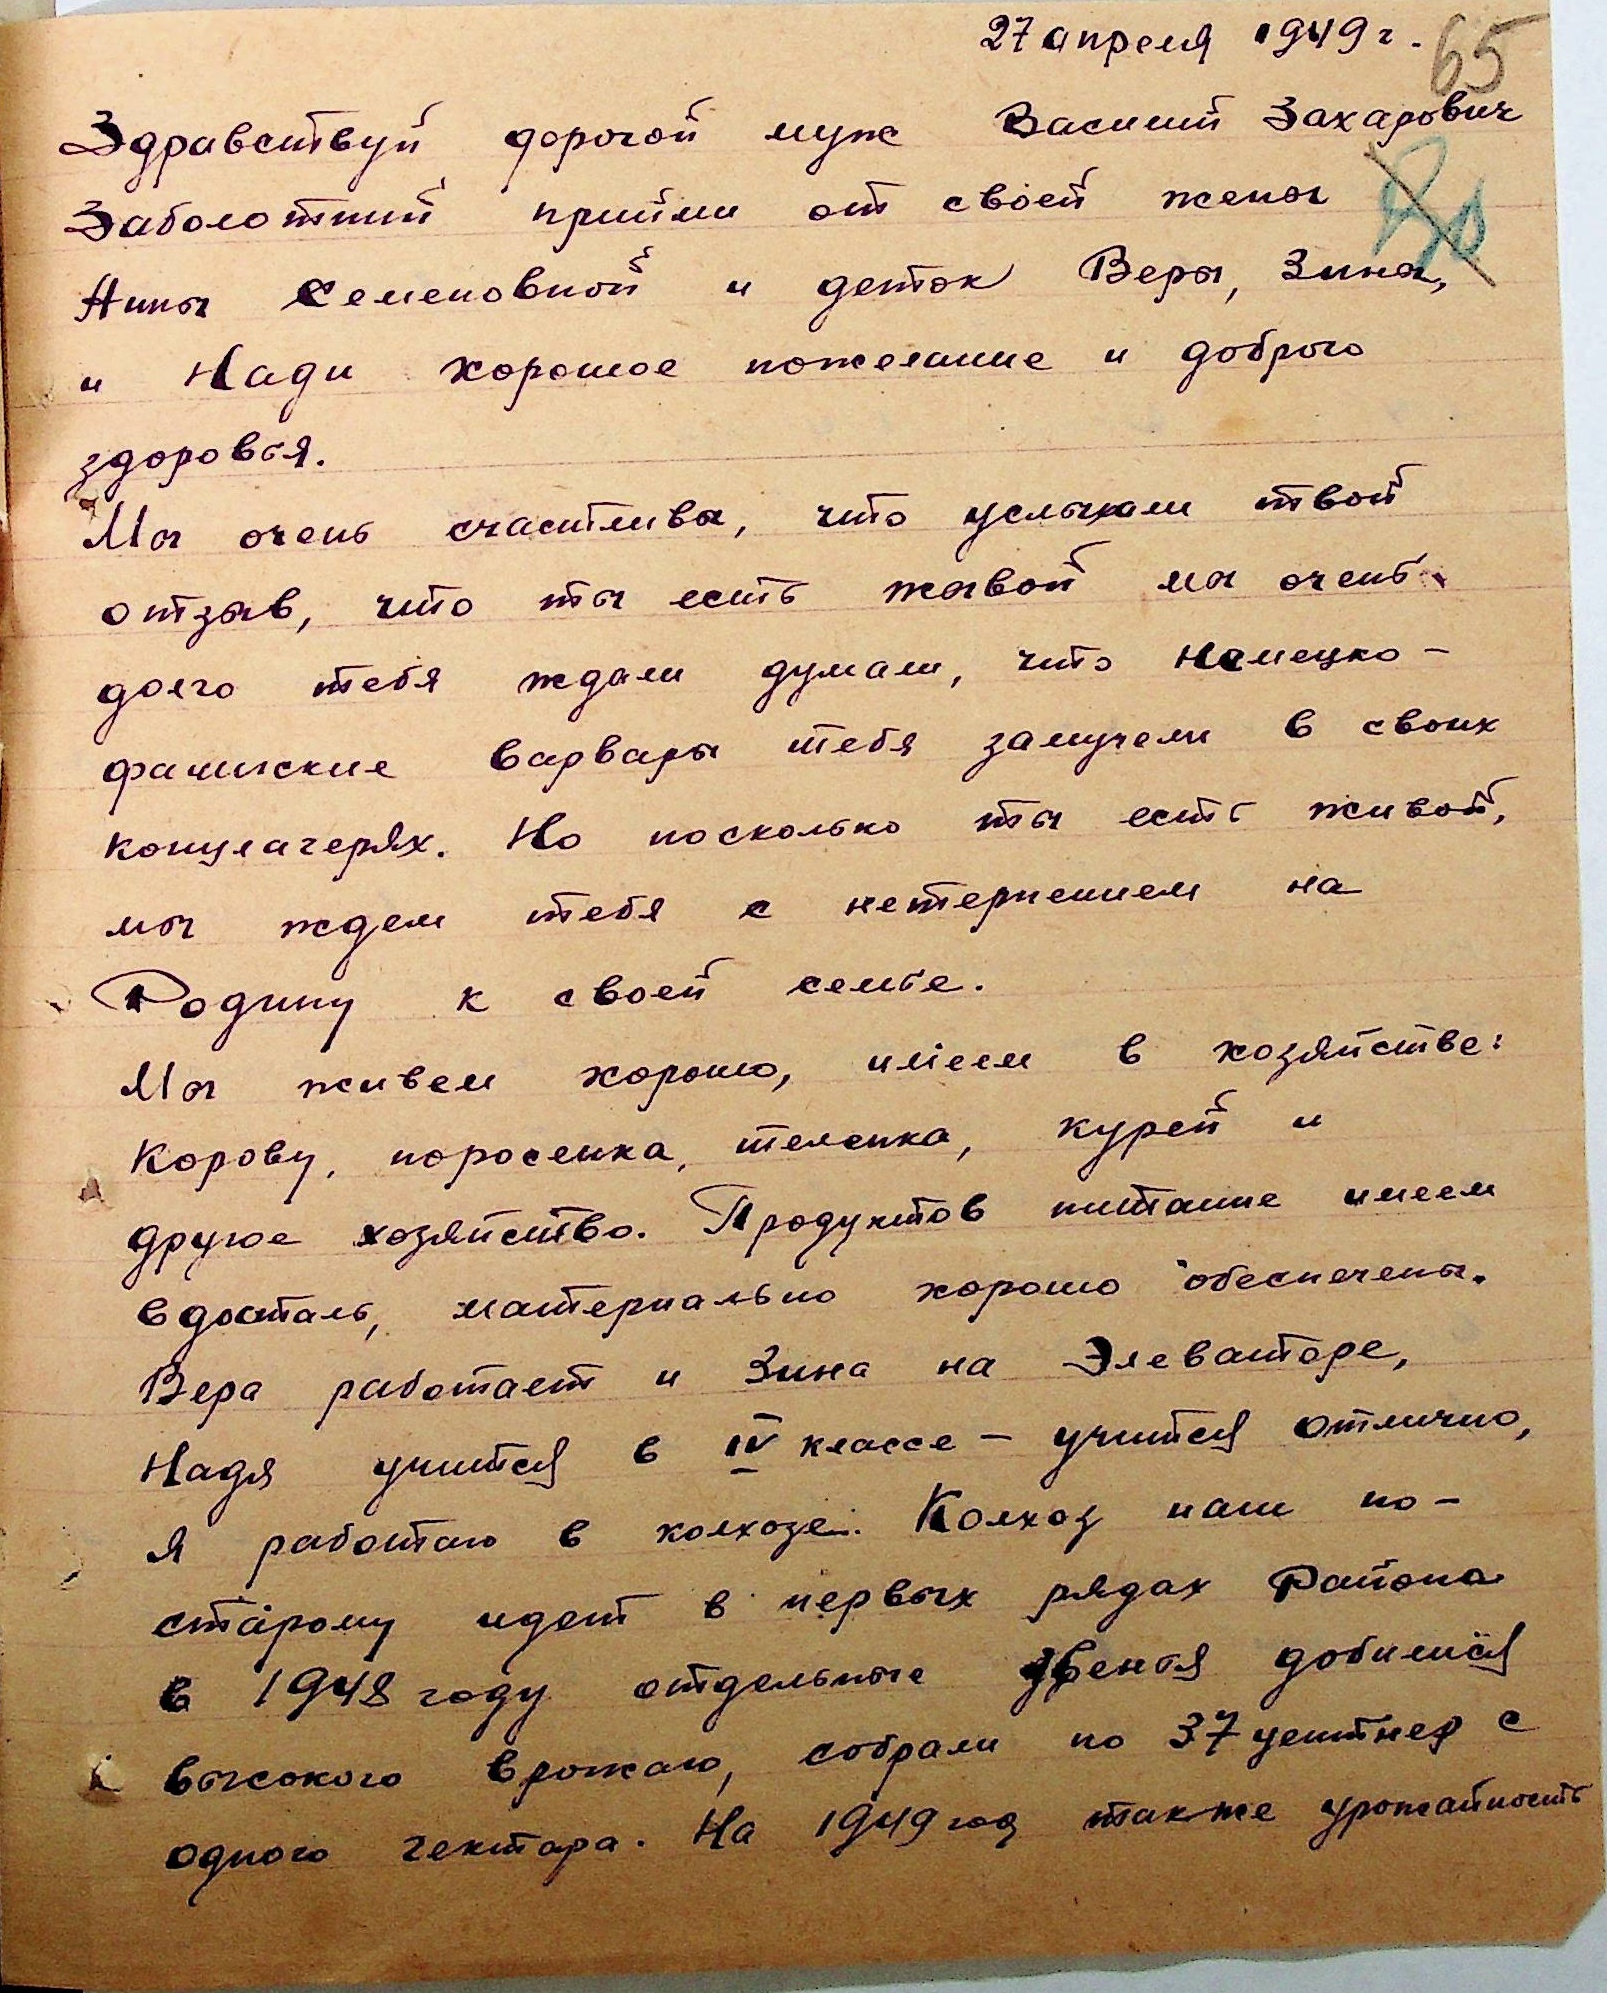 27 апреля 1949 г.
65
Здравствуй дорогой муж Василий Захарович
Заболотний прийми от своей жены
Анны Семеновной и деток Веры, Зины,
и Нади хорошое пожелание и доброго
здоровья.
Мы очень счастливы, что услыхали твой
отзыв, что ты есть живой мы очень
долго тебя ждали думали, что немецко-
фашиские варвары тебя замучели в своих
концлагерях. Но поскольно ты есть живой,
мы ждем тебя с нетерпением на
Родину к своей семье.
Мы живем хорошо, имеем в хозяйстве:
Корову, поросенка, теленка, курей и
другое хозяйство. Продуктов питание имеем
вдосталь, материально хорошо обеспечены.
Вера работает и Зина на Элеваторе,
Надя учится в IV классе - учится отлично,
я работаю в колхозе. Колхоз наш по-
старому идет в первых рядах Района
в 1948 году отдельные звенья добилися
высокого врожаю, собрали по 37 центнер с
одного гектара. На 1949 год также урожайность